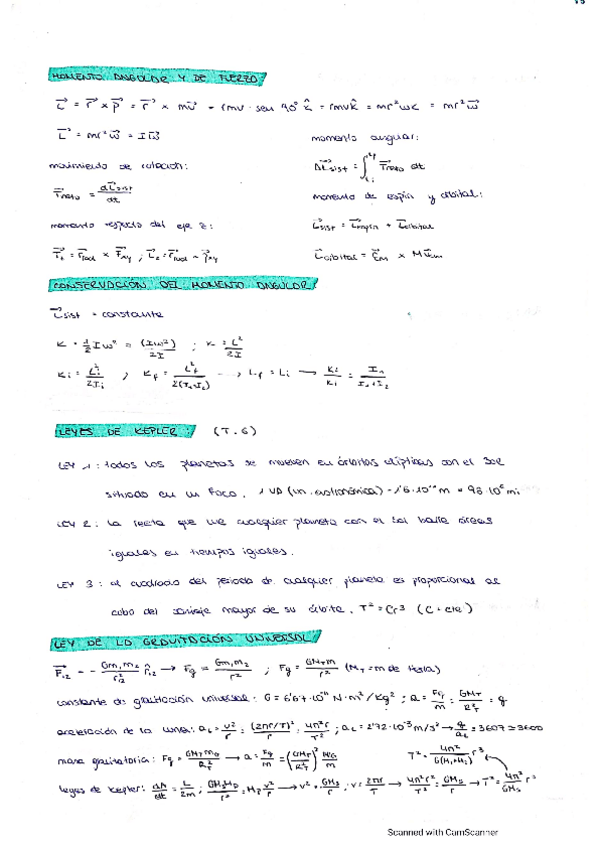 MOMENTO ANGULAR Y DE FUERZA
L⃗ = r⃗ × p⃗ = r⃗ × mv⃗ = rmv · sen 90° k̂ = rmvk̂ = mr²ωk̂ = mr²ω⃗
L⃗ = mr²ω⃗ = Iω⃗
momento angular:
movimiento de rotación:
ΔL⃗sist = ∫ τ⃗neto dt
τ⃗neto = dL⃗sist/dt
momento de espín y orbital:
momento respecto del eje z:
L⃗sist = L⃗espín + L⃗orbital
τ⃗z = r⃗rad × F⃗xy ; L⃗z = r⃗rad × p⃗xy
L⃗orbital = r⃗cm × Mv⃗cm
CONSERVACIÓN DEL MOMENTO ANGULAR
L⃗sist = constante
K = ½Iω² = (Iω)²/2I ; K = L²/2I
Ki = Li²/2Ii ; Kf = Lf²/2(I1+I2) → Lf = Li → Kf/Ki = I1/I1+I2
LEYES DE KEPLER (T.6)
LEY 1: todos los planetas se mueven en órbitas elípticas con el Sol
situado en un foco. 1 UA (un. astronómica) = 1'5·10¹¹ m = 93·10⁶ mi
LEY 2: la recta que une cualquier planeta con el Sol barre áreas
iguales en tiempos iguales.
LEY 3: el cuadrado del periodo de cualquier planeta es proporcional al
cubo del semieje mayor de su órbita. T² = Cr³ (C = cte)
LEY DE LA GRAVITACIÓN UNIVERSAL
F⃗12 = - Gm1m2/r²12 r̂12 → Fg = Gm1m2/r² ; Fg = GMTm/r² (MT = m de tierra)
constante de gravitación universal: G = 6'67·10⁻¹¹ N·m²/kg² ; a = Fg/m = GMT/R²T = g
aceleración de la luna: aL = v²/r = (2πr/T)²/r = 4π²r/T² ; aL = 2'72·10⁻³ m/s² → g/aL = 3607 ≃ 3600
masa gravitatoria: Fg = GMTmG/R²T → a = Fg/m = (GMT/R²T) mG/m
T² = 4π²/G(M1+M2) r³
leyes de Kepler: dA/dt = L/2m ; GMSMP/r² = MP v²/r → v² = GMS/r ; v = 2πr/T → 4π²r²/T² = GMS/r → T² = 4π²/GMS r³
Scanned with CamScanner